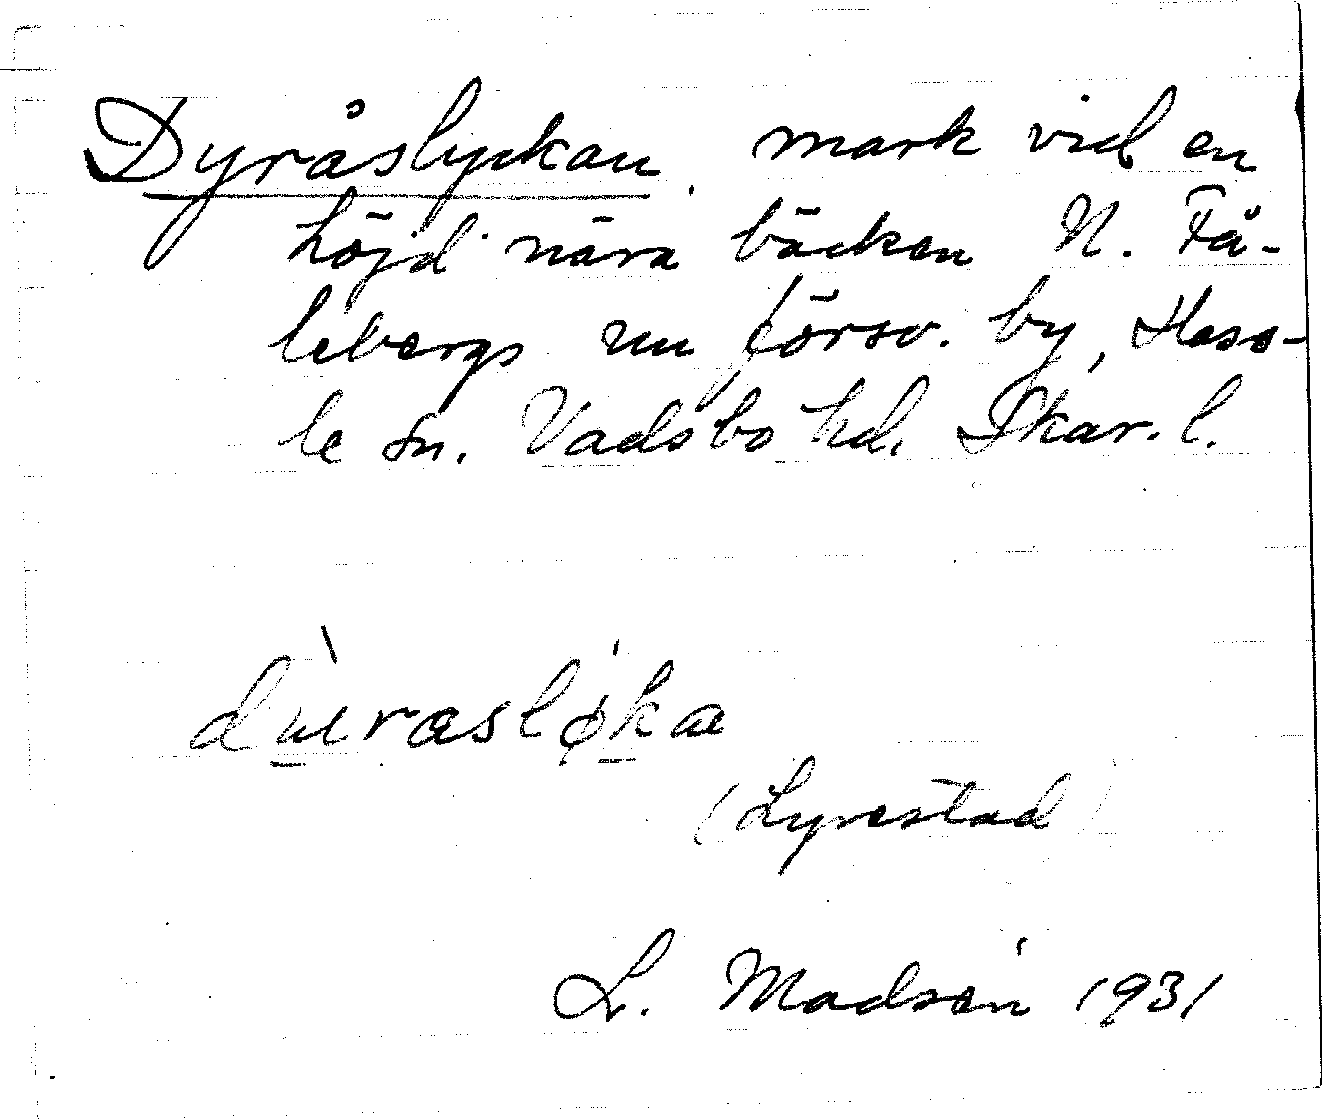 Dyråslyckan, mark vid en
höjd nära bäcken N. Få-
lebergs nu försv. by, Hass-
le sn. Vadsbo hd. Skar. l.
(Lyrestad)
L. Madsén 1931